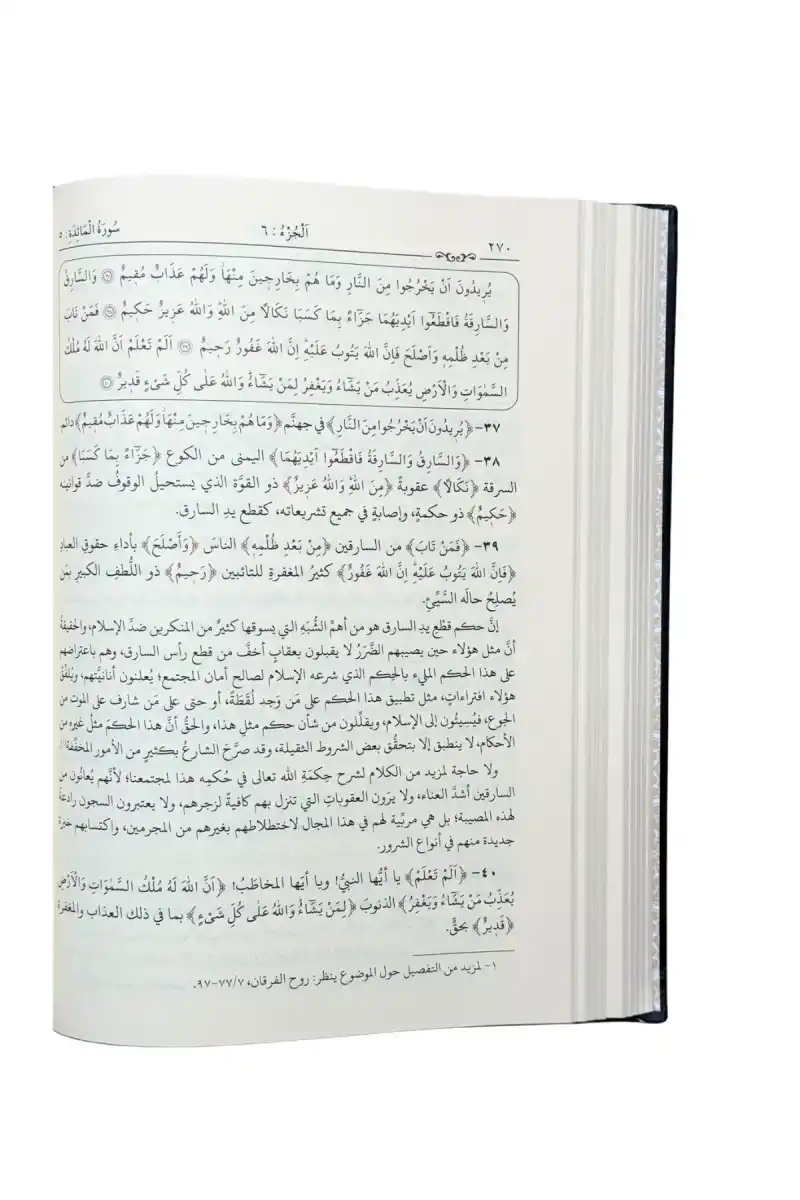 ٢٧٠ اَلْجُزْءُ : ٦ سُورَةُ الْمَائِدَةِ: ٥
يُرِيدُونَ اَنْ يَخْرُجُوا مِنَ النَّارِ وَمَا هُمْ بِخَارِجِينَ مِنْهَاۘ وَلَهُمْ عَذَابٌ مُقِيمٌ ۝ وَالسَّارِقُ
وَالسَّارِقَةُ فَاقْطَعُٓوا اَيْدِيَهُمَا جَزَٓاءً بِمَا كَسَبَا نَكَالًا مِنَ اللّٰهِۜ وَاللّٰهُ عَزِيزٌ حَكِيمٌ ۝ فَمَنْ تَابَ
مِنْ بَعْدِ ظُلْمِهٖ وَاَصْلَحَ فَاِنَّ اللّٰهَ يَتُوبُ عَلَيْهِۜ اِنَّ اللّٰهَ غَفُورٌ رَحِيمٌ ۝ اَلَمْ تَعْلَمْ اَنَّ اللّٰهَ لَهُ مُلْكُ
السَّمٰوَاتِ وَالْاَرْضِ يُعَذِّبُ مَنْ يَشَٓاءُ وَيَغْفِرُ لِمَنْ يَشَٓاءُۜ وَاللّٰهُ عَلٰى كُلِّ شَيْءٍ قَدِيرٌ ۝
٣٧- ﴿يُرِيدُونَ اَنْ يَخْرُجُوا مِنَ النَّارِ﴾ في جهنَّم ﴿وَمَا هُمْ بِخَارِجِينَ مِنْهَاۘ وَلَهُمْ عَذَابٌ مُقِيمٌ﴾ دائم.
٣٨- ﴿وَالسَّارِقُ وَالسَّارِقَةُ فَاقْطَعُٓوا اَيْدِيَهُمَا﴾ اليمنى من الكوع ﴿جَزَٓاءً بِمَا كَسَبَا﴾ من
السرقة ﴿نَكَالًا﴾ عقوبةً ﴿مِنَ اللّٰهِۜ وَاللّٰهُ عَزِيزٌ﴾ ذو القوَّة الذي يستحيلُ الوقوفُ ضدَّ قوانينه
﴿حَكِيمٌ﴾ ذو حكمةٍ، وإصابةٍ في جميع تشريعاته، كقطع يدِ السارق.
٣٩- ﴿فَمَنْ تَابَ﴾ من السارقين ﴿مِنْ بَعْدِ ظُلْمِهٖ﴾ الناسَ ﴿وَاَصْلَحَ﴾ بأداءِ حقوقِ العبادِ
﴿فَاِنَّ اللّٰهَ يَتُوبُ عَلَيْهِۜ اِنَّ اللّٰهَ غَفُورٌ﴾ كثيرُ المغفرةِ للتائبين ﴿رَحِيمٌ﴾ ذو اللُّطفِ الكبيرِ بمَن
يُصلِحُ حالَه السَّيِّئَ.
إنَّ حكم قطعِ يدِ السارق هو من أهمِّ الشُّبَهِ التي يسوقها كثيرٌ من المنكرين ضدَّ الإسلام، والحقيقةُ
أنَّ مثل هؤلاء حين يصيبهم الضَّرَرُ لا يقبلون بعقابٍ أخفَّ من قطع رأس السارق، وهم باعتراضهم
على هذا الحكم المليء بالحِكم الذي شرعه الإسلام لصالح أمان المجتمع؛ يُعلنون أنانيَّتهم، ويُلفِّقُ
هؤلاء افتراءاتٍ، مثل تطبيق هذا الحكم على مَن وَجد لُقَطَةً، أو حتى على مَن شارف على الموت من
الجوع، فيُسِيئُون إلى الإسلام، ويقلِّلون من شأن حكم مثل هذا، والحقُّ أنَّ هذا الحكمَ مثلُ غيره من
الأحكام، لا ينطبق إلا بتحقُّق بعض الشروط الثقيلة، وقد صرَّح الشارعُ بكثيرٍ من الأمور المخفِّفة(١).
ولا حاجة لمزيد من الكلام لشرح حِكمَةِ الله تعالى في حُكمِه هذا لمجتمعنا؛ لأنَّهم يُعانُون من
السارقين أشدَّ العناء، ولا يرَون العقوباتِ التي تنزل بهم كافيةً لزجرهم، ولا يعتبرون السجون رادعةً
لهذه المصيبة؛ بل هي مربِّية لهم في هذا المجال لاختلاطهم بغيرهم من المجرمين، واكتسابهم خبرة
جديدة منهم في أنواع الشرور.
٤٠- ﴿اَلَمْ تَعْلَمْ﴾ يا أيُّها النبيُّ! ويا أيّها المخاطَبُ! ﴿اَنَّ اللّٰهَ لَهُ مُلْكُ السَّمٰوَاتِ وَالْاَرْضِ
يُعَذِّبُ مَنْ يَشَٓاءُ وَيَغْفِرُ﴾ الذنوبَ ﴿لِمَنْ يَشَٓاءُۜ وَاللّٰهُ عَلٰى كُلِّ شَيْءٍ﴾ بما في ذلك العذاب والمغفرة
﴿قَدِيرٌ﴾ بحقٍّ.
١- لمزيد من التفصيل حول الموضوع ينظر: روح الفرقان، ٧٧/٧-٩٧.